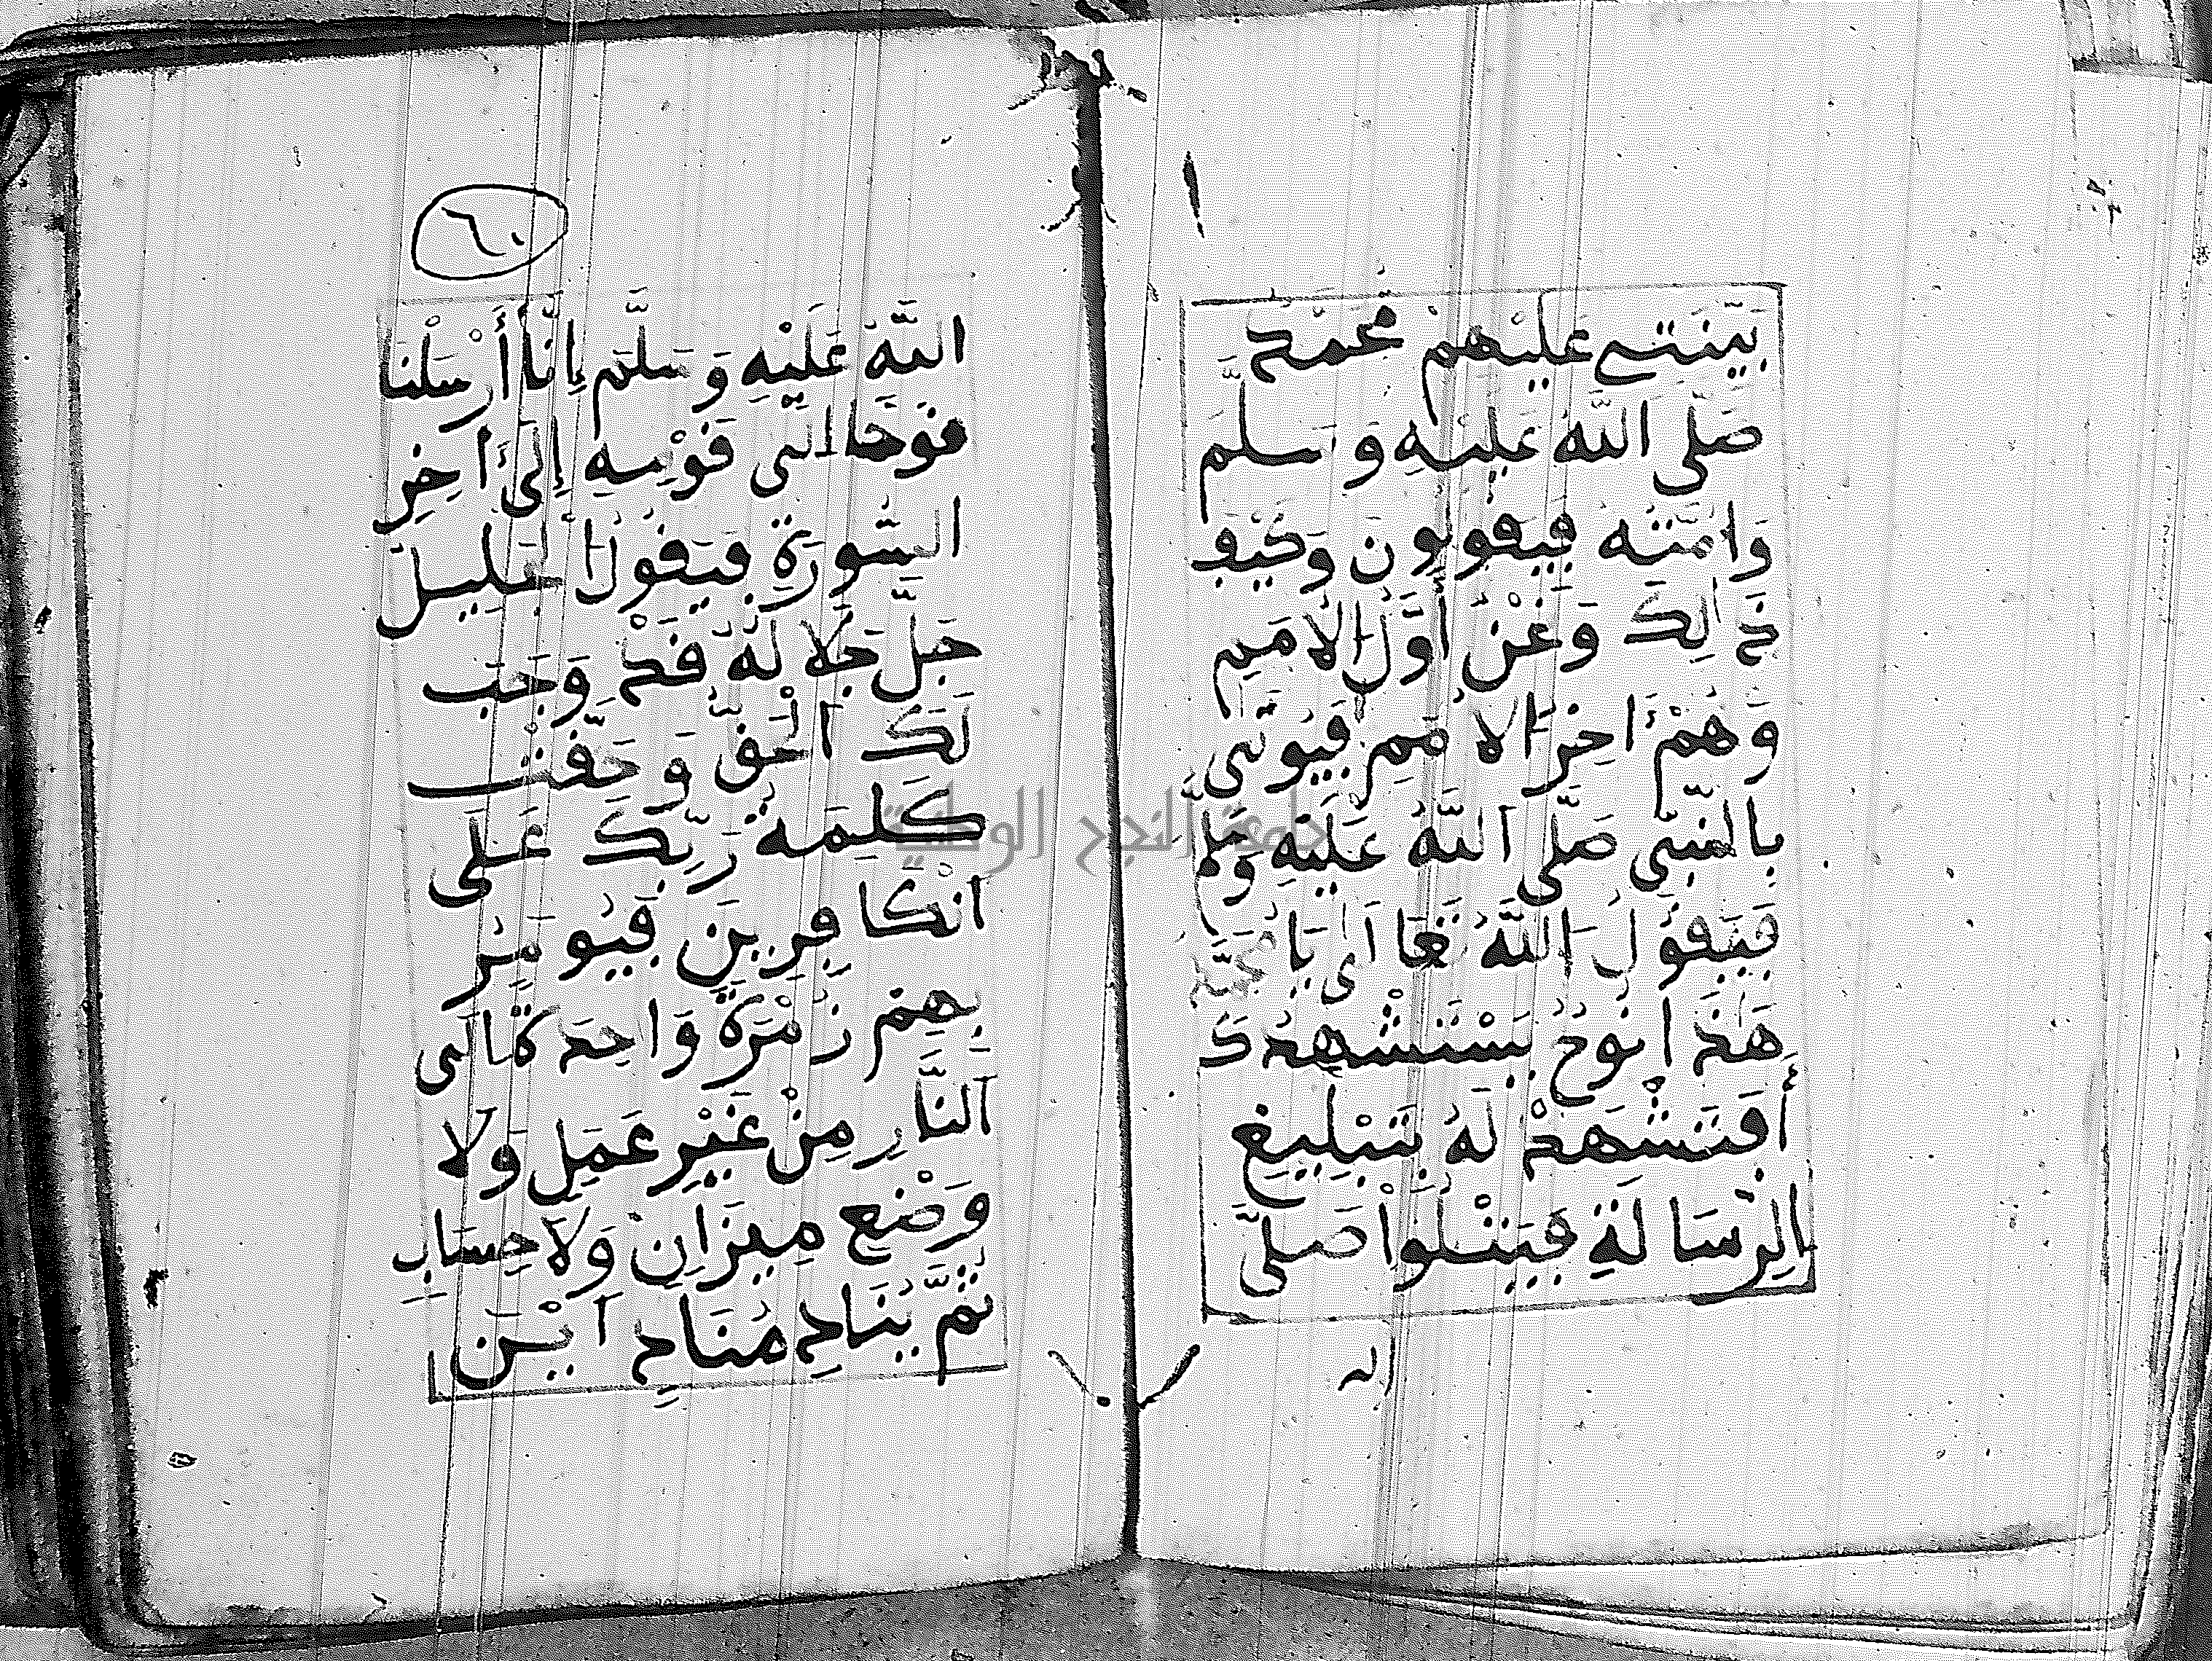 بَيِّنَتِي عَلَيْهِمْ مُحَمَّد
صَلَّى اللَّه عَلَيْهِ وَسَلَّم
وَاُمَّتُه فَيَقُولُونَ وَكَيْفَ
ذَالِكَ وَنَحْنُ أَوَّلُ الْأُمَمِ
وَهُمْ ءَاخِرُ الْأُمَمِ فَيُوتَى
بِالنَّبِيِّ صَلَّى اللَّهُ عَلَيْهِ وَسَلَّم
فَيَقُولُ اللَّهُ تَعَالَى يَا مُحَمَّد
هَذَا نُوحٌ يَسْتَشْهِدُكَ
أَفَتَشْهَدْ لَهُ بِتَبْلِيغِ
الرِّسَالَةِ فَيَتْلُواْ صَلَّى
الله
٦٠
اللَّهُ عَلَيْهِ وَسَلَّمَ إِنَّا أَرْسَلْنَا
نُوحًا الَى قَوْمِهِ إِلَى ءَاخِرِ
السُّورَةِ فَيَقُولُ الْجَلِيلُ
جَلَّ جَلَالُهُ قَدْ وَجَبَ
لَكَ الْحَقُّ وَحَقَّتْ
كَلِمَةُ رَبِّكَ عَلَى
الْكَافِرِينَ فَيُومَرُ
بِهِمْ زُمْرَةً وَاحِدَةً الَى
النَّارِ مِنْ غَيْرِ عَمَلٍ وَلَا
وَضْعِ مِيزَانٍ وَلَا حِسَابٍ
ثُمَّ يُنَادِ مُنَادٍ اَيْنَ
جامعة النجاح الوطنية